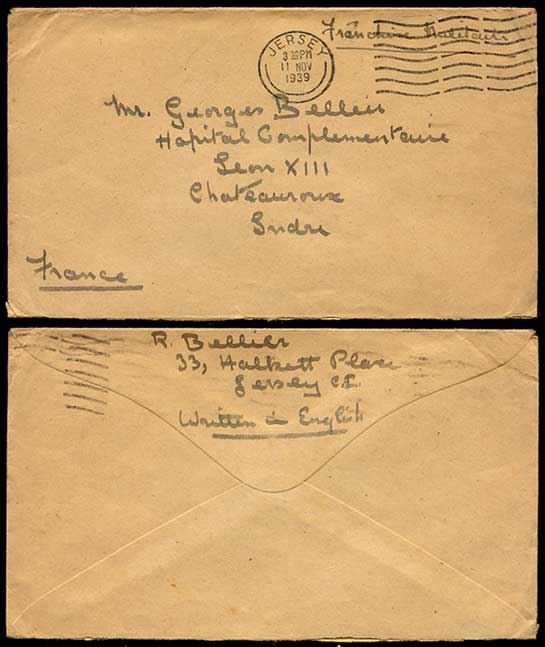 Franchise Militaire
JERSEY
3 30 PM
11 NOV
1939
Mr. Georges Bellier
Hopital Complementaire
Leon XIII
Chateauroux
Indre
France
R. Bellier
33, Halkett Place
Jersey C.I.
Written in English